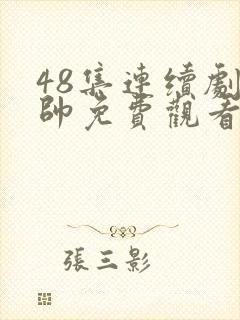 48集連續劇
帥免費觀看
張三影